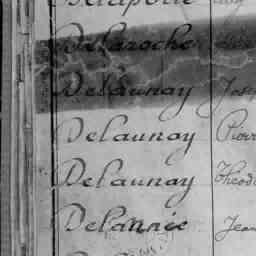 Delaroche
Delaunay
Delaunay Pierr
Delaunay Théod
Delaunée Jean